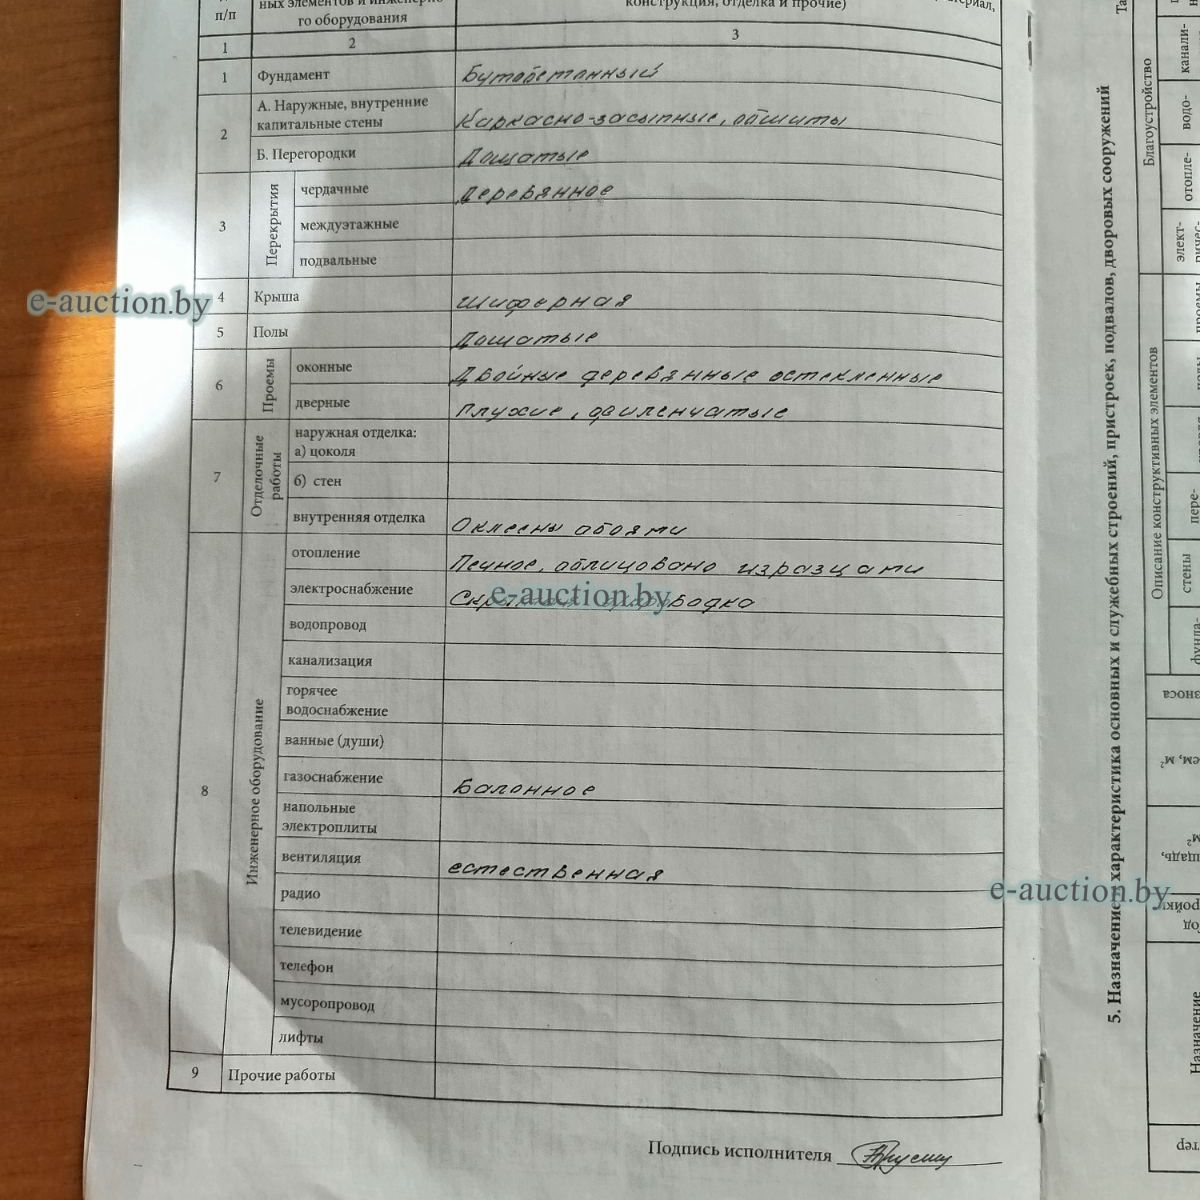 п/п
ных элементов и инженерно-
го оборудования
конструкция, отделка и прочие)
1 2 3
1 Фундамент Бутобетонный
2 А. Наружные, внутренние
капитальные стены Каркасно-засыпные, обшиты
Б. Перегородки Дощатые
3 Перекрытия чердачные Деревянное
междуэтажные
подвальные
4 Крыша шиферная
5 Полы Дощатые
6 Проемы оконные Двойные деревянные остекленные
дверные Глухие, филенчатые
7 Отделочные работы наружная отделка:
а) цоколя
б) стен
внутренняя отделка Оклеены обоями
8 Инженерное оборудование отопление Печное, облицовано изразцами
электроснабжение
водопровод
канализация
горячее
водоснабжение
ванные (души)
газоснабжение Балонное
напольные
электроплиты
вентиляция естественная
радио
телевидение
телефон
мусоропровод
лифты
9 Прочие работы
Подпись исполнителя
5. Назначение, характеристика основных и служебных строений, пристроек, подвалов, дворовых сооружений
Благоустройство
канали-
водо-
отопле-
элект-
ричес-
Описание конструктивных элементов
пере-
стены
фунда-
Назначение
e-auction.by
e-auction.by
e-auction.by